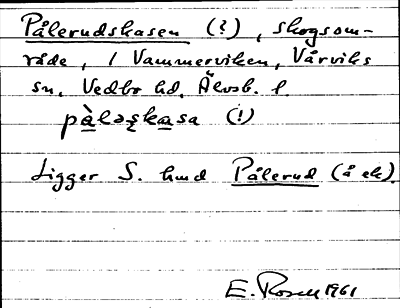 Pålerudskasen (?), skogsom-
råde, i Vammerviken, Vårviks
sn, Vedbo hd, Älvsb. l.
pàlaskasa (!)
Ligger S. hmd Pålerud (å ek).
E. Rosell 1961